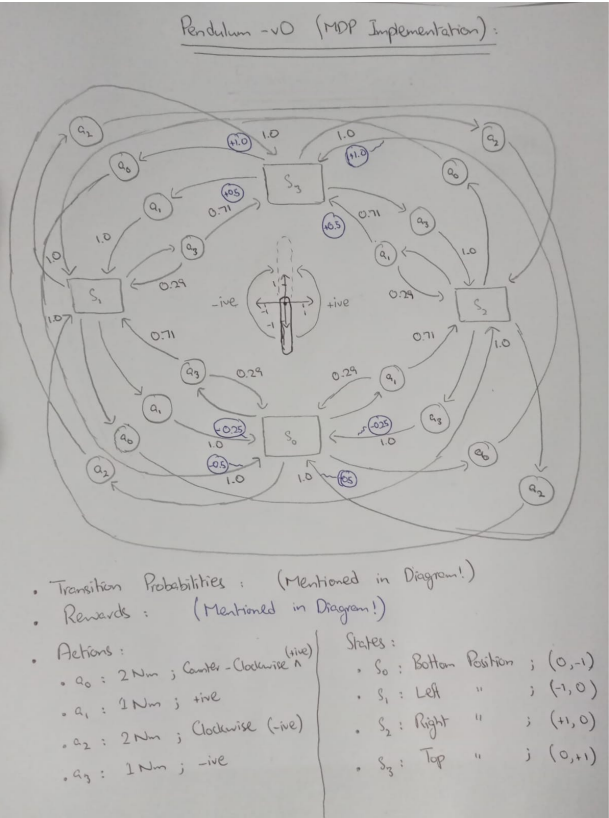 Pendulum -v0 (MDP Implementation):
a2 1.0 1.0 a2
+1.0 +1.0
a0 S3 a0
a1 +0.5 0.71 0.71 a3
+0.5
1.0 a3 a1 1.0
1.0 0.29 0.29
S1 -ive 1 -1 1 -1 +ive S2
1.0 0.71 0.71 1.0
a3 0.29 0.29 a1
a1 -0.25 S0 -0.25 a3
a0 1.0 1.0
a2 -0.5 1.0 1.0 +0.5 a0
a2
. Transition Probabilities : (Mentioned in Diagram!)
. Rewards : (Mentioned in Diagram!)
. Actions :
. a0 : 2 Nm ; Counter-Clockwise ^ (+ive)
. a1 : 1 Nm ; +ive
. a2 : 2 Nm ; Clockwise (-ive)
. a3 : 1 Nm ; -ive
States :
. S0 : Bottom Position ; (0,-1)
. S1 : Left " ; (-1,0)
. S2 : Right " ; (+1,0)
. S3 : Top " ; (0,+1)